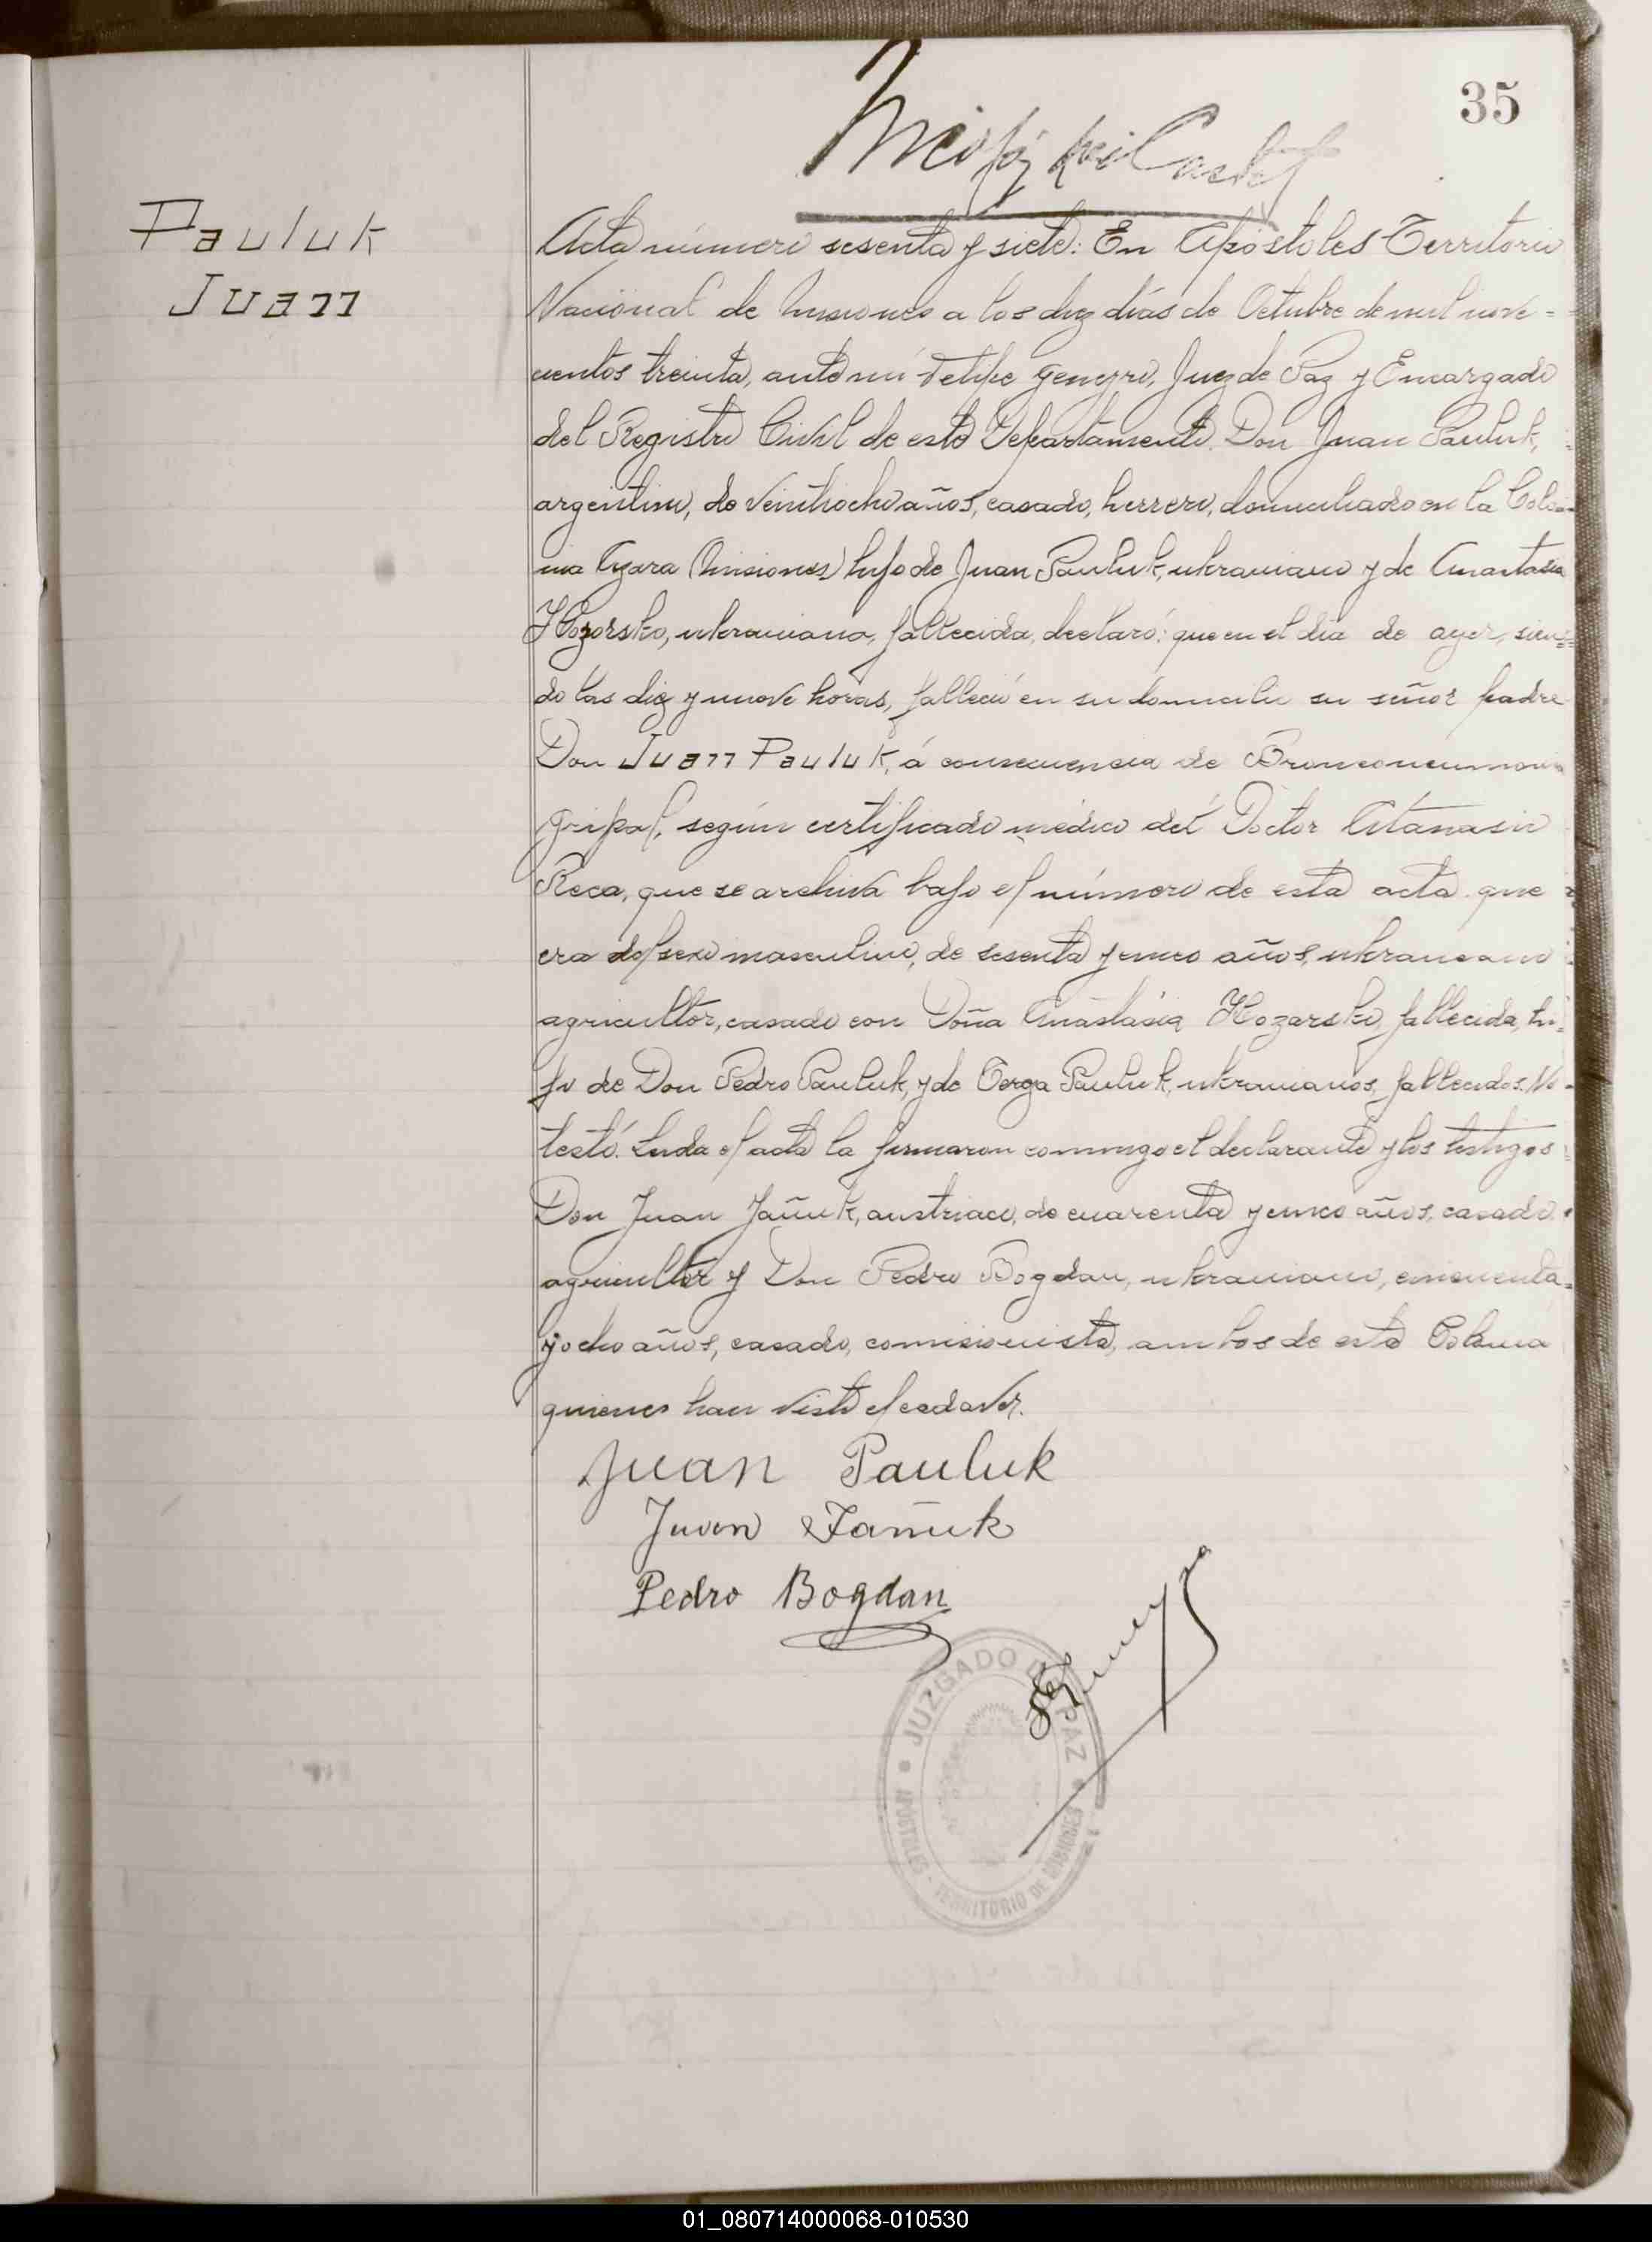 35
Pauluk
Juan
Acta número sesenta y siete: En Apóstoles Territorio
Nacional de Misiones a los diez días de Octubre de mil nove=
cientos treinta, ante mí Felipe Juez de Paz y Encargado
del Registro Civil de este Departamento. Don Juan Pauluk,
argentino, de veintiocho años, casado, herrero, domiciliado en la Colo=
nia Azara (Misiones) hijo de Juan Pauluk, ukraniano y de Anastasia
Hozorsko, ukraniana, fallecida, declaró: que en el día de ayer, sien=
do las diez y nueve horas, falleció en su domicilio su señor padre
Don Juan Pauluk, á consecuencia de Bronconeumonia
gripal, según certificado médico del Doctor Atanasio
Reca, que se archiva bajo el número de esta acta que
era del sexo masculino, de sesenta y cinco años, ukraniano
agricultor, casado con Doña Anastásia Hozarsko, fallecida, hi=
jo de Don Pedro Pauluk, y de Terga Pauluk, ukranianos, fallecidos. No
testó. Leida el acta la firmaron conmigo el declarante y los testigos
Don Juan Jañuk, austriaco, de cuarenta y cinco años, casado.
agricultor y Don Pedro Bogdan, ukraniano, cincuenta=
y ocho años, casado, comisionista, ambos de esta Colonia
quienes han visto el cadaver.
Juan Pauluk
Juan Jañuk
Pedro Bogdan
JUZGADO DE PAZ
APOSTOLES - TERRITORIO DE MISIONES
01_080714000068-010530